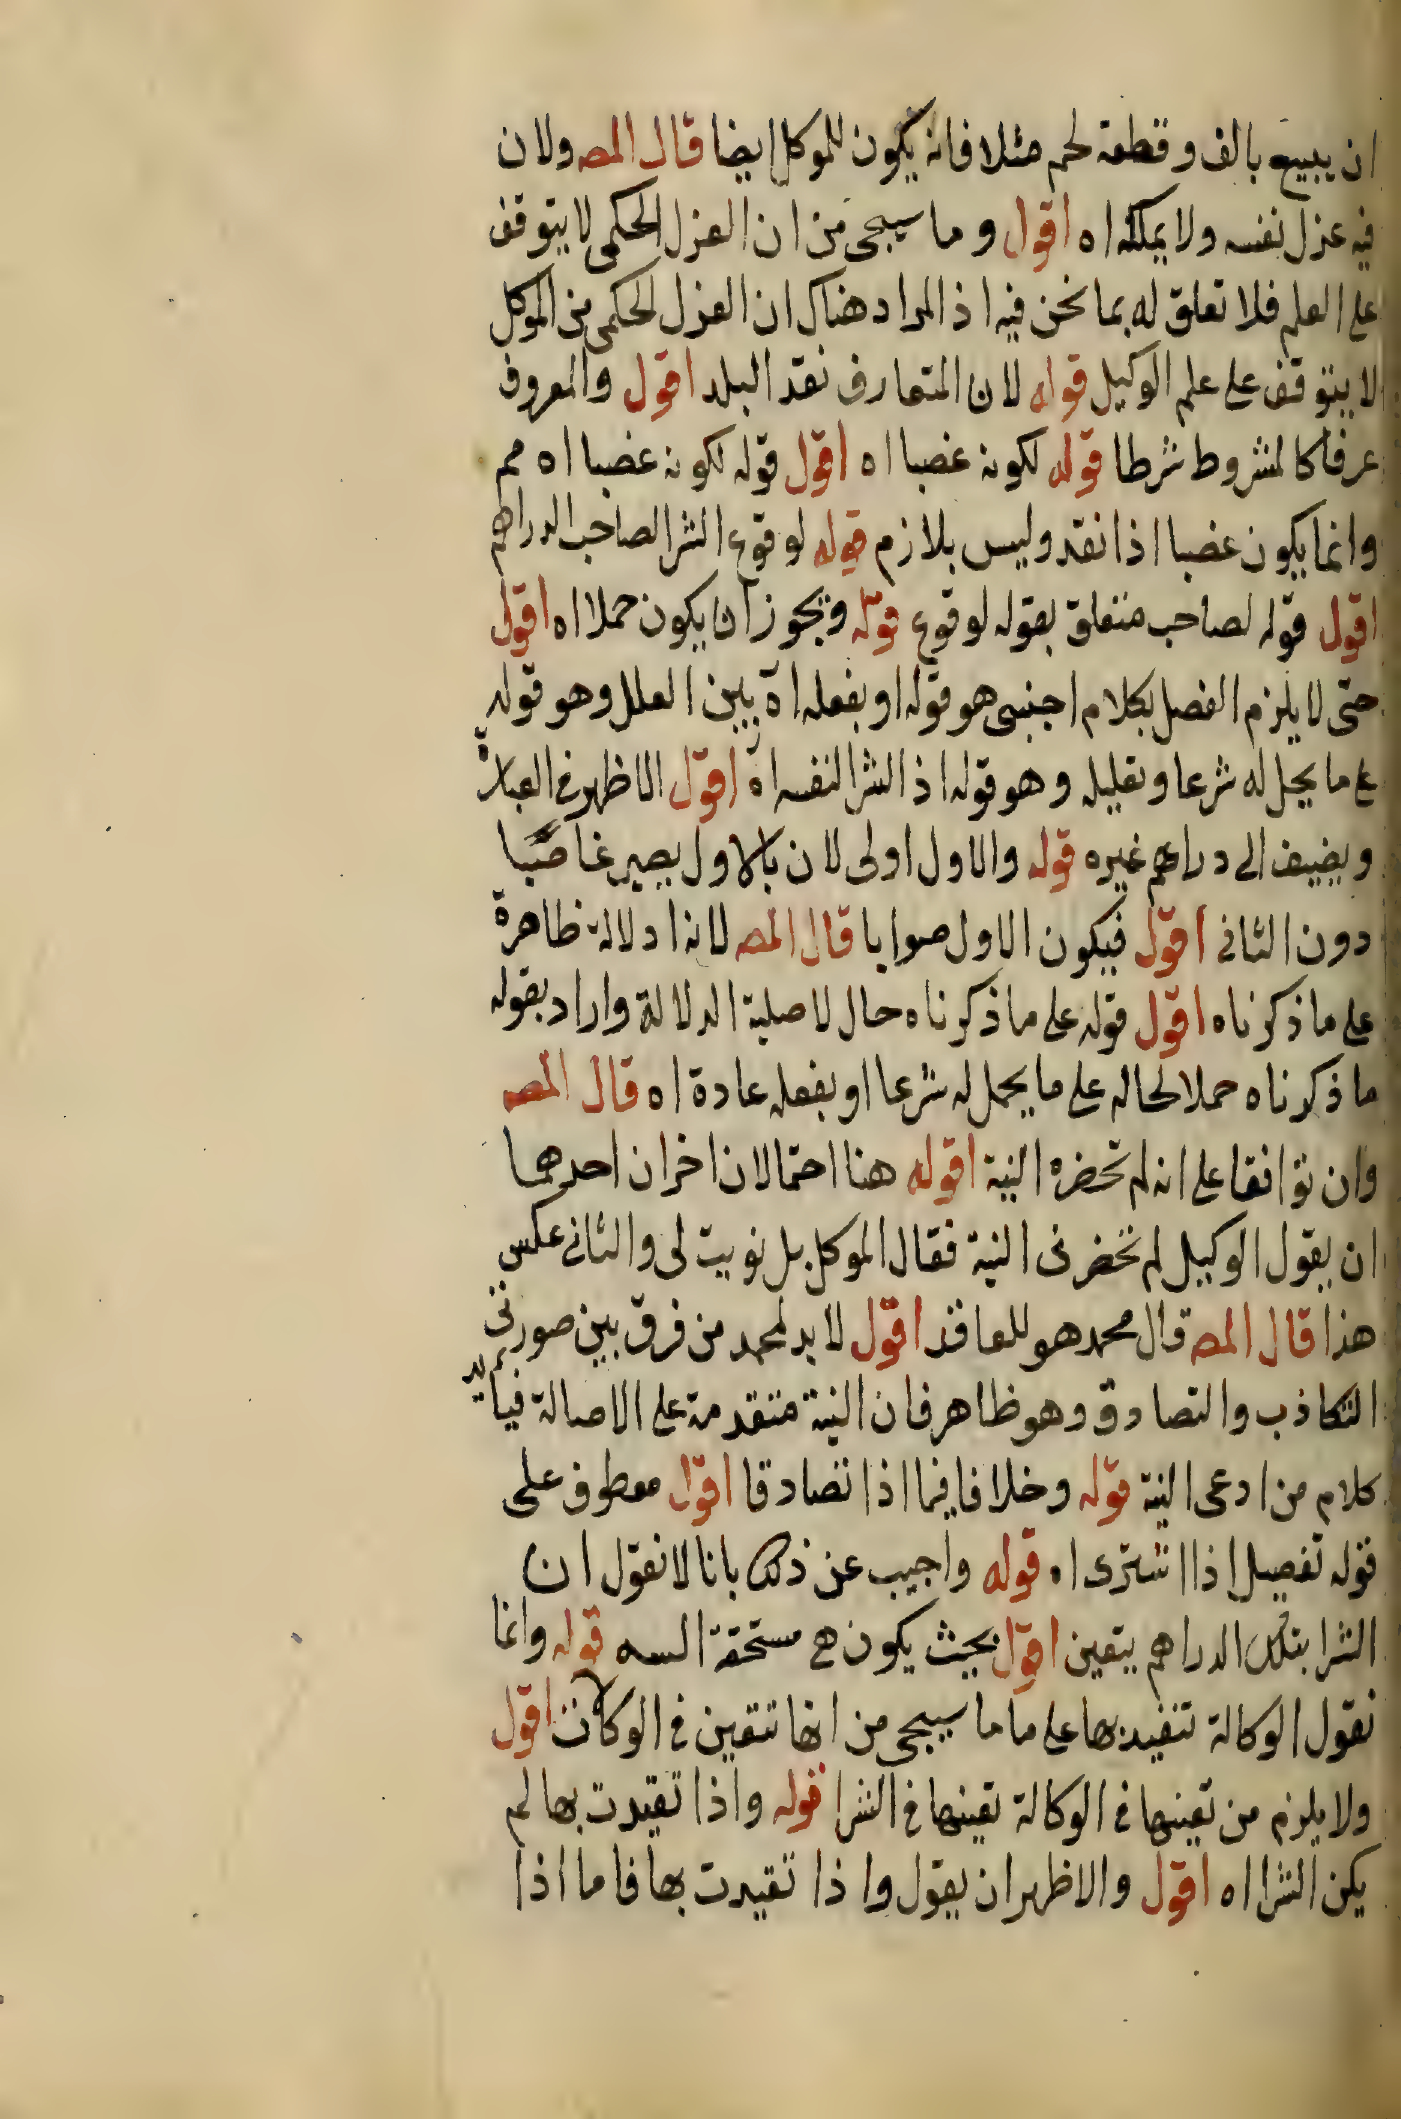 ان يبيع بالف وقطعة لحم مثلا فانه يكون للموكل ايضا قال المص ولان
فيه عزل نفسه ولا يملكه اه اقول وما سيجى من ان العزل الحكمى لا يتوقف
على العلم فلا تعلق له بما نحن فيه اذ المراد هناك ان العزل الحكمى من الموكل
لا يتوقف على علم الوكيل قوله لان المتعارف نقد البلد اقول والمعروف
عرفا كالمشروط شرطا قوله لكونه غصبا اه اقول قوله لكونه غصبا اه مم
وانما يكون غصبا اذا نقد وليس بلازم قوله لوقوع الشرا لصاحب الدراهم
اقول قوله لصاحب متعلق بقوله لوقوع قوله ويجوز ان يكون حملا اه اقول
حتى لا يلزم الفصل بكلام اجنبى هو قوله او يفعله اه بين العلل وهو قوله
على ما يحل له شرعا وتعليله وهو قوله اذ الشرا لنفسه اه اقول الاظهر فى العبارة
ويضيف الى دراهم غيره قوله والاول اولى لان بالاول يصير غاصبا
دون الثانى اقول فيكون الاول صوابا قال المص لانه اد لالة ظاهرة
على ما ذكرناه اقول قوله على ما ذكرناه حال لا صلية الدلالة واراد بقوله
ما ذكرناه حملا لحاله على ما يحمل له شرعا او يفعله عادة اه قال المص
وان توافقا على انه لم تحضره النية اقوله هنا احتمالان اخران احدهما
ان يقول الوكيل لم تحضرنى النية فقال الموكل بل نويت لى والثانى عكس
هذا قال المص قال محمد هو للعاقد اقول لا بد لمحمد من فرق بين صورتى
التكاذب والتصادق وهو ظاهر فان النية متقدمة على الاصالة فيتايد
كلام من ادعى النية قوله وخلافا فيما اذا تصادقا اقول معطوف على
قوله تفصيل اذا اشترى اه قوله واجيب عن ذلك بانا لا نقول ان
الشرا بتلك الدراهم يتعين اقول بحيث يكون هى مستحقة قوله وانما
نقول الوكالة تتقيد بها على ما ما سيجى من انها تتعين فى الوكالات اقول
ولا يلزم من تعينها فى الوكالة تعينها فى الشرا قوله واذا تقيدت بها لم
يكن الشرا اه اقول والاظهر ان يقول واذا تقيدت بها فاما اذا